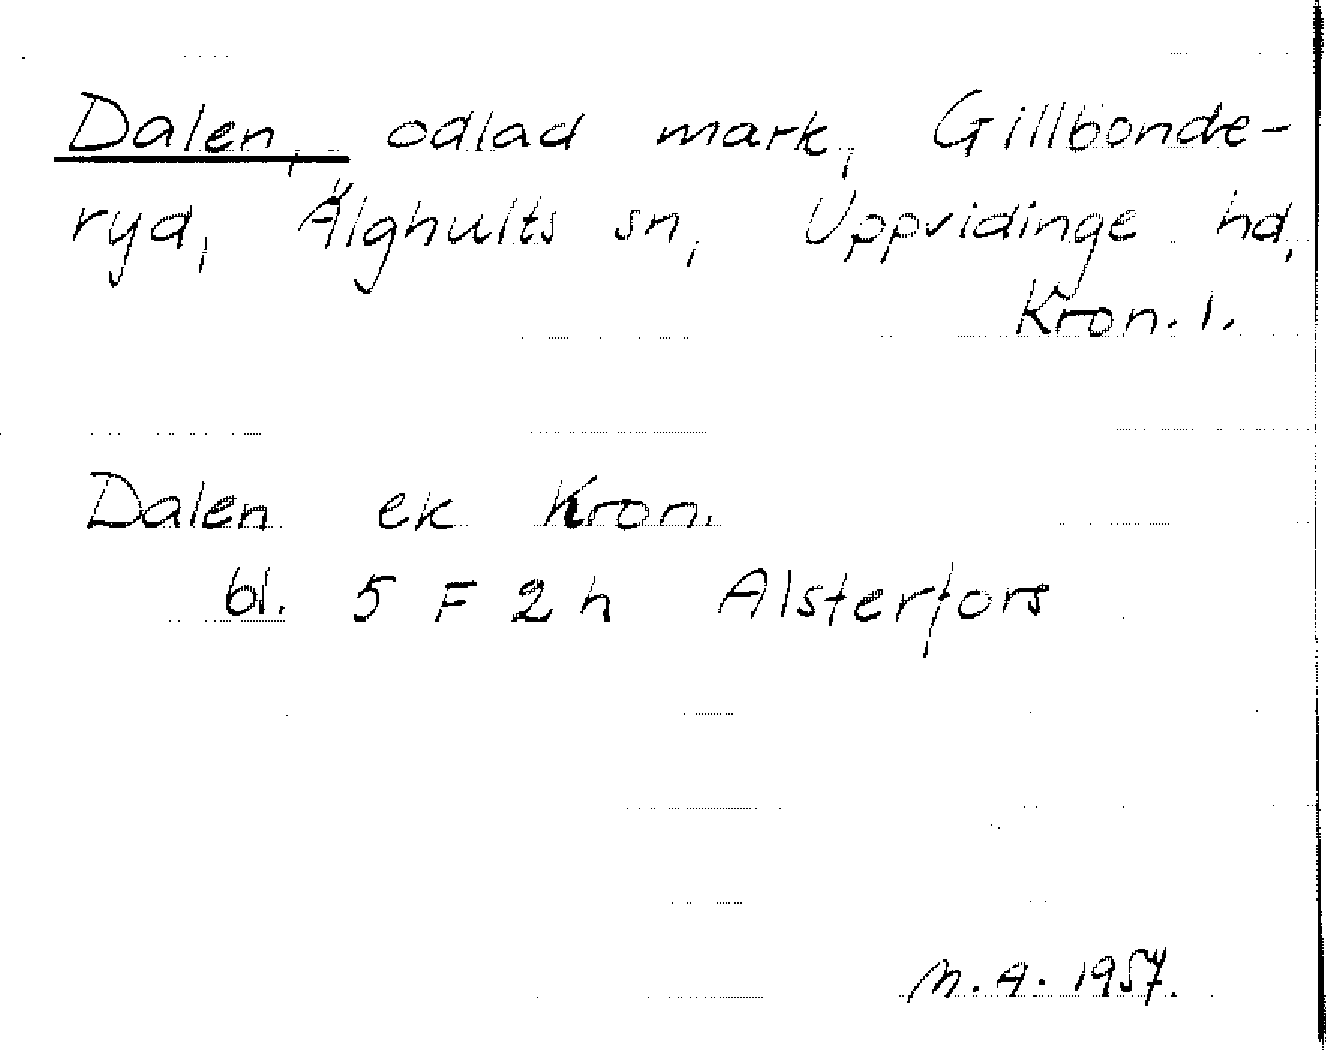 Dalen, odlad mark, Gillbonde-
ryd, Älghults sn, Uppvidinge hd,
Kron. l.
Dalen ek Kron.
bl. 5 F 2 h Alsterfors
M. A. 1957.